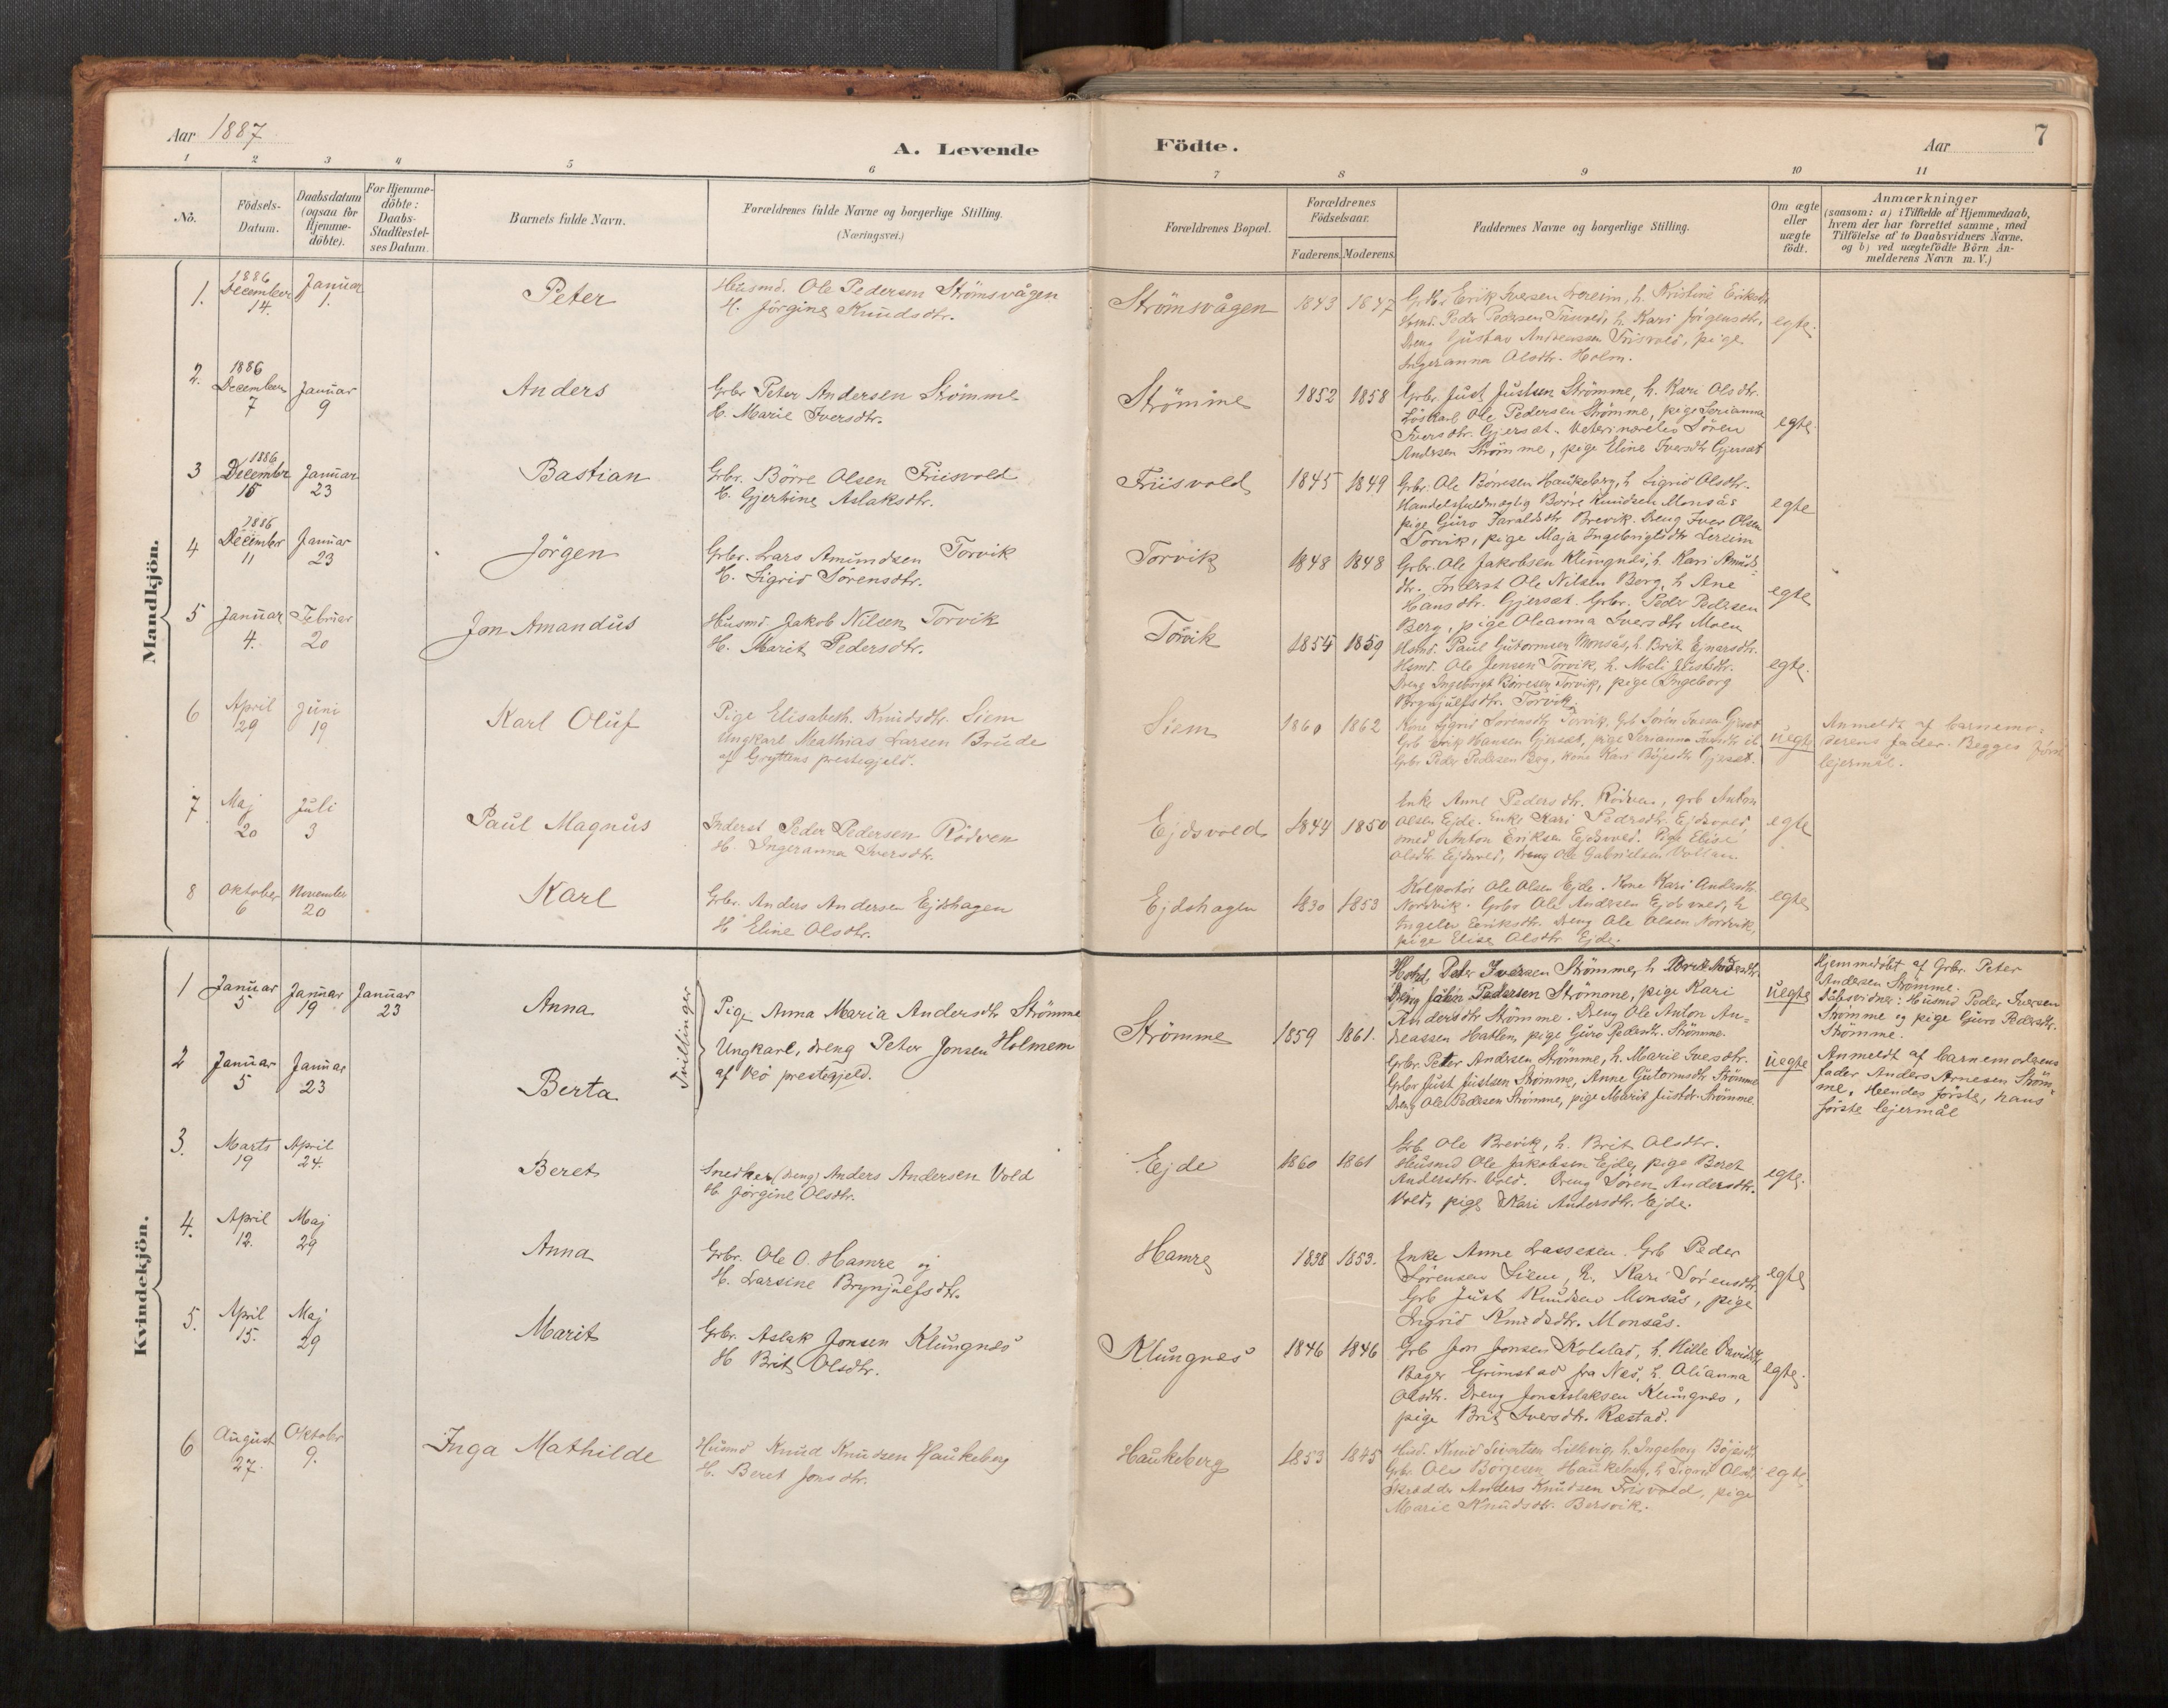 Aar 1887
A. Levende
Födte.
Aar
7
1 2 3 4 5 6 7 8 9 10 11
No.
Födsels-Datum.
Daabsdatum (ogsaa for Hjemme-döbte).
For Hjemme-döbte: Daabs-Stadfæstel-ses Datum.
Barnets fulde Navn.
Forældrenes fulde Navne og borgerlige Stilling.
(Næringsvei.)
Forældrenes Bopæl.
Forældrenes Födselsaar.
Faderens. Moderens.
Faddernes Navne og borgerlige Stilling.
Om ægte eller uægte födt.
Anmærkninger
(saasom: a) i Tilfælde af Hjemmedaab, hvem der har forrettet samme, med Tilföielse af to Daabsvidners Navne, og b) ved uægtefödte Börn An-melderens Navn m. V.)
Mandkjön.
1. 1886 December 14. Januar 1. Peter
Husmd. Ole Pedersen Strömsvågen
H. Jörgine Knudsdtr.
Strömsvågen 1843 1847
Grbr. Erik Iversen Lereim, h. Kristine Eriksdtr
Husmd. Peder Pedersen Friisvold, h. Kari Jörgensdtr,
Dreng Gustav Andreassen Friisvold, pige
Ingeranna Olsdtr. Holm.
egte.
2. 1886 December 7 Januar 9 Anders
Grbr Peter Andersen Strömme
H. Marie Iversdtr.
Strömme 1852 1858
Grbr. Just Justsen Strömme, h. Kari Olsdtr.
Löskarl Ole Pedersen Strömme, pige Serianna
Iversdtr. Gjersæt. Veterinærelev Sören
Andersen Strömme, pige Eline Iversdtr Gjersæt
egte
3 1886 December 15 Januar 23 Bastian
Grbr. Börre Olsen Friisvold
H. Gjertine Aslaksdtr.
Friisvold 1845 1849
Grbr. Ole Börresen Haukeberg, h Sigrid Olsdtr.
Handelsfuldmægtig Börre Knudsen Monsås
pige Guro Taraldsdtr Brevik. Dreng Iver Olsen
Torvik, pige Maja Ingebrigtsdtr Lereim
egte
4 1886 December 11 Januar 23 Jörgen
Grbr. Lars Amundsen Torvik
H. Sigrid Sörensdtr.
Torvik 1848 1848
Grbr. Ole Jakobsen Klungnes, h. Kari Amunds-
dtr. Inderst Ole Nilsen Berg, h Ane
Hansdtr. Gjersæt. Grbr. Peder Pedersen
Berg, pige Oleanna Iversdtr Moen
egte
5 Januar 4. Februar 20 Jon Amandus
Husmd. Jakob Nilsen Torvik
H. Marit Pedersdtr.
Torvik 1854 1859
Hsmd. Paul Gutormsen Monsås, h. Brit Ejnarsdtr.
Hsmd. Ole Jensen Torvik, h. Mali Justsdtr.
Dreng Ingebrigt Börresen Torvik, pige Ingeborg
Brynjulfsdtr. Torvik.
egte.
6 April 29 Juni 19 Karl Oluf
Pige Elisabeth Knudsdtr. Siem
Ungkarl Mathias Larsen Brude
af Gryttens prestegjeld.
Siem 1860 1862
Kone Sigrid Sörensdtr Torvik. Grb Sören Jussen Gjersæt
Grb Erik Hansen Gjersæt, pige Serianna
Grbr Peder Pedersen Berg, Kone Kari Böjesdtr Gjersæt.
uegte
Anmeldt af barnemo-
derens fader. Begges förste
lejermål.
7 Maj 20 Juli 3 Paul Magnus
Inderst Peder Pedersen Rödven
H. Ingeranna Iversdtr.
Ejdsvold 1844 1850
Enke Anne Pedersdtr. Rödven, grb Anton
Olsen Ejde. Enke Kari Pedersdtr. Ejdsvold,
med Anton Eriksen Ejdsvold. Pige Elise
Olsdtr. Ejdsvold, Dreng Ole Gabrielsen Vollan.
egte
8 Oktober 6 November 20 Karl
Grbr. Anders Andersen Ejdshagen
H Eline Olsdtr.
Ejdshagen 1830 1853
Kolportör Ole Olsen Ejde. Kone Kari Andersdtr.
Nordvik. Grbr Ole Andersen Ejdsvold, h
Ingeber Eriksdtr. Dreng Ole Olsen Nordvik,
pige Elise Olsdtr Ejde.
egte
Kvindekjön.
1 Januar 5 Januar 19 Januar 23 Anna
Tvillinger
Pige Anna Maria Andersdtr Strömme
Ungkarl, dreng Peter Jonsen Holmem
af Veö prestegjeld.
Strömme 1859 1861.
Peder Iversen Strömme, h Marit
Dreng John Pedersen Strömme, pige Kari
Andersdtr Strömme. Dreng Ole Anton An-
dreassen Hatlen, pige Guro Pedersdtr. Strömme.
uegte
Hjemmedöbt af Grbr. Peter
Andersen Strömme.
Dåbsvidner: Husmd Peder Iversen
Strömme og pige Guro Pedersdtr.
Strömme.
2 Januar 5 Januar 23 Berta
Grbr. Peter Andersen Strömme, h. Marie Iversdtr.
Grbr Just Justsen Strömme, Anne Gutormsdtr Strömme
Dreng Ole Pedersen Strömme, pige Marit Justsdtr. Strömme.
uegte
Anmeldt af barnemoderens
fader Anders Arnesen Ström-
me. Hendes förste, hans
förste lejermål
3. Marts 19 April 24. Beret
Snedker (dreng) Anders Andersen Vold
H Jörgine Olsdtr.
Ejde 1860 1861
Grb Ole Brevik, h. Brit Olsdtr.
Husmd Ole Jakobsen Ejde, pige Beret
Andersdtr. Vold. Dreng Sören Andersdtr.
Vold, pige Kari Andersdtr. Ejde.
egte.
4. April 12. Maj 29 Anna
Grbr. Ole O. Hamre og
H. Larsine Brynjulfsdtr.
Hamre 1838 1853.
Enke Anne Lassesen. Grb Peder
Sörensen Siem, h. Kari Sörensdtr.
Grb Just Knudsen Monsås, pige
Ingrid Knudsdtr. Monsås.
egte
5. April 15. Maj 29 Marit
Grbr. Aslak Jonsen Klungnes
H Brit Olsdtr.
Klungnes 1846 1846
Grb Jon Jonsen Kolstad, h. Hille Davidsdtr
Bager Grimstad fra Næs, h. Olianna
Olsdtr. Dreng Jon Aslaksen Klungnes,
pige Brit Iversdtr. Ræstad.
egte.
6 August 27. Oktober 9. Inga Mathilde
Husmd Knud Knudsen Haukeberg
H. Beret Jonsdtr.
Haukeberg 1853 1845
Knud Sivertsen h. Ingeborg Böjesdtr
Grbr. Ole Börjesen Haukeberg, h Sigrid Olsdtr
Skrædder Anders Knudsen Frisvold, pige
Marie Knudsdtr. Bersvik.
egte